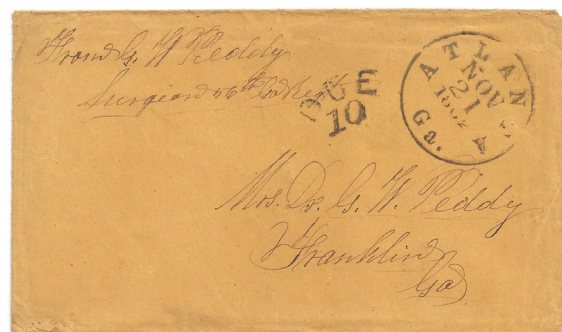 From G. W. Peddy
Surgeon 56th Ga Regt
DUE
10
ATLANTA
NOV
21
1862
Ga.
Mrs. Dr. G. W. Peddy
Franklin
Ga